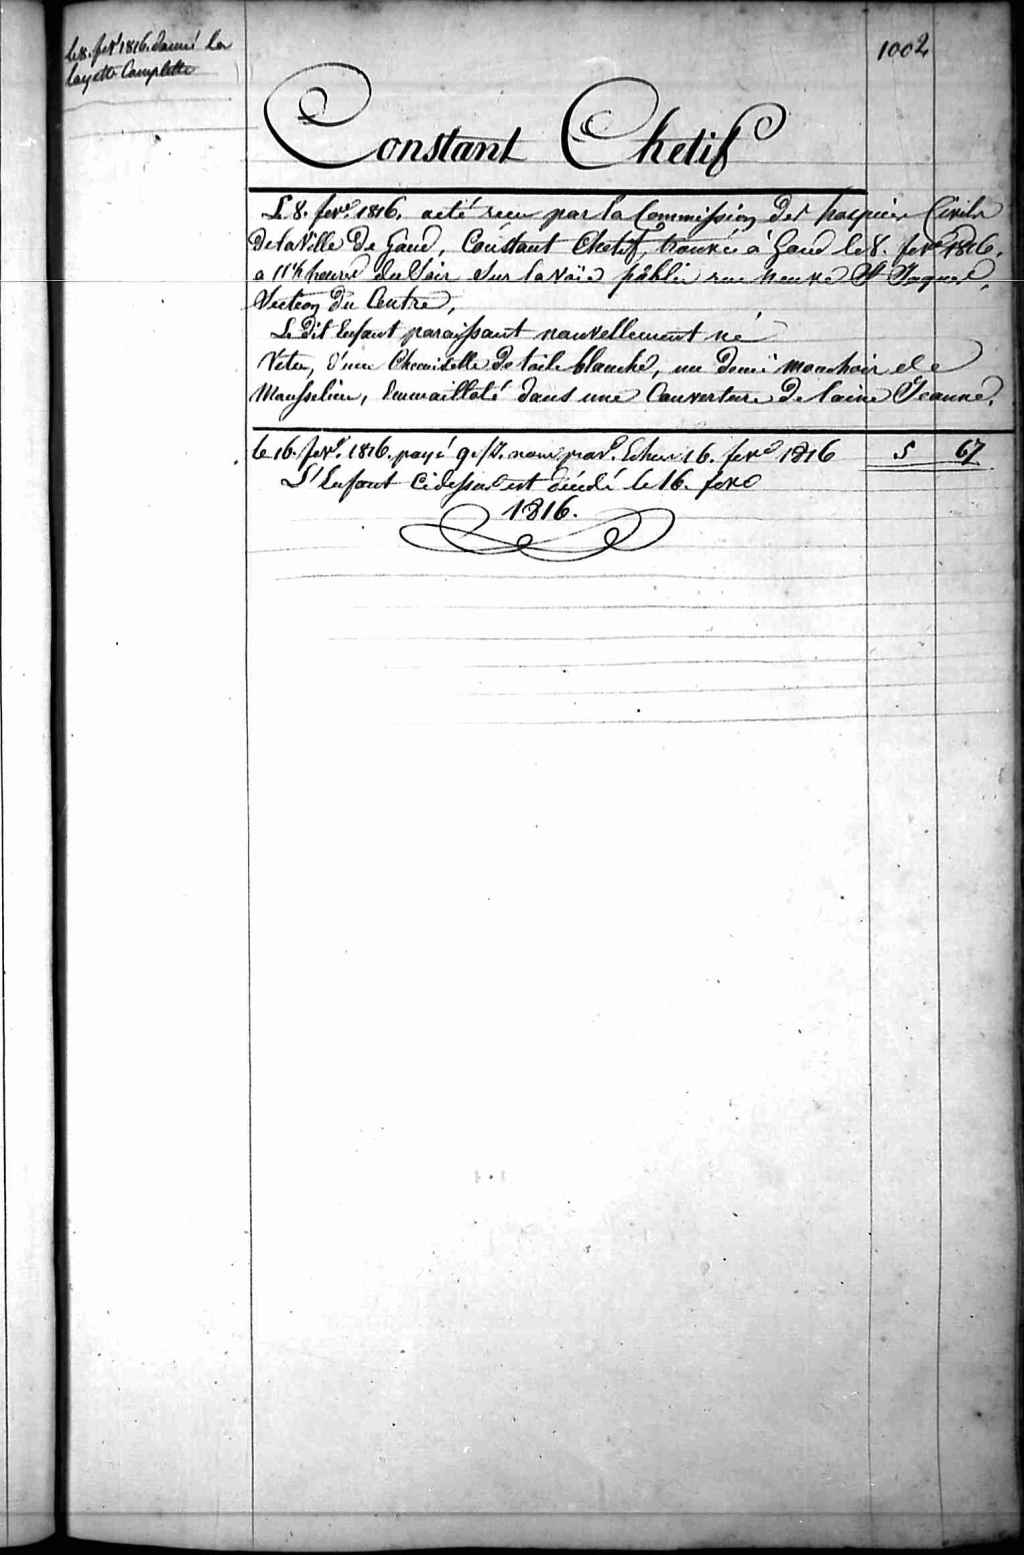 le 8. fevr 1816. donné la
layette Complette
1002
Constant Chetif
Le 8. fevr. 1816. a eté recu par la Commission des hospices Civils
de la Ville de Gand, Constant Chetif, trouvé à Gand le 8. fevr. 1816.
a 11 ½ heures du Soir Sur la voie public rue neuve St Jaques,
Section du Centre,
Le dit Enfant paraissant nouvellement né
Vetu, d'une Chemisette de toile blanche, un demi mouchoir de
Mousseline, Emmailloté dans une Couverture de laine Jeaune.
le 16. fevr. 1816. payé Echu 16. fevr 1816 5 67
L'Enfant Cidessus est décédé le 16. fevr
1816.